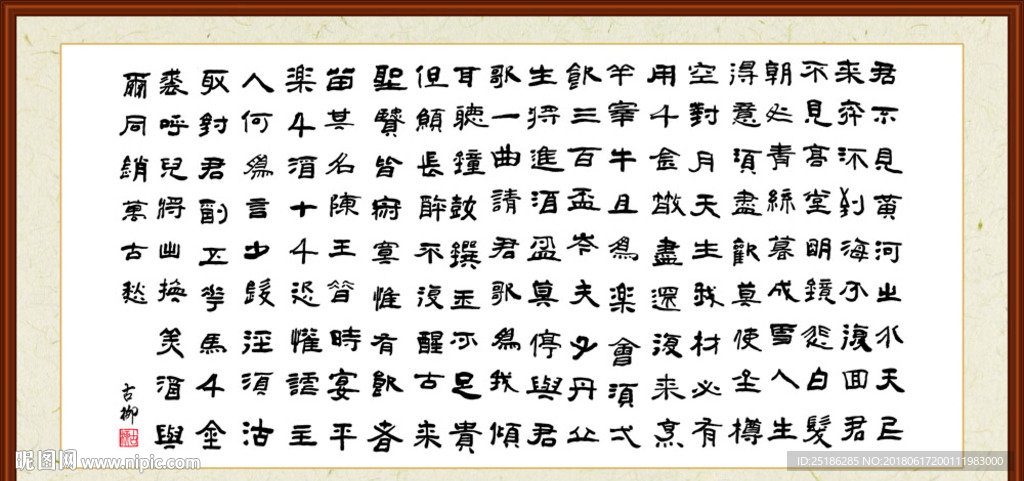 君不見黃河之水天上
来奔流到海不復回君
不見高堂明鏡悲白髮
朝如青絲暮成雪人生
得意須盡歡莫使金樽
空對月天生我材必有
用千金散盡還復来烹
羊宰牛且為樂會須弌
飲三百盃岑夫子丹丘
生將進酒盃莫停與君
歌一曲請君歌為我傾
耳聽鐘鼓饌玉不足貴
但願長醉不復醒古来
聖賢皆寂寞惟有飲者
留其名陳王昔時宴平
樂斗酒十千恣懽謔主
人何為言少錢徑須沽
取對君酌五花馬千金
裘呼兒將出換美酒與
爾同銷萬古愁
古柳
昵图网 www.nipic.com
ID:25186285 NO:20180617200111983000